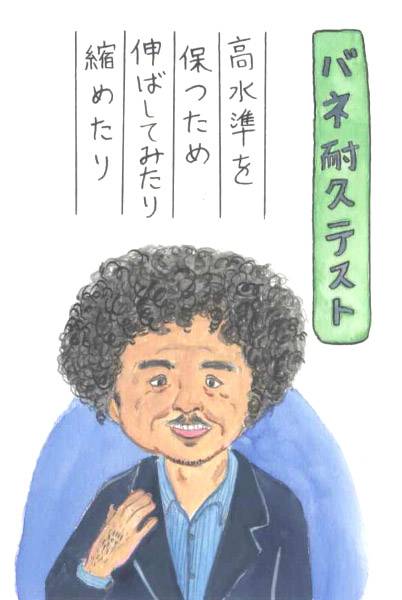 バネ耐久テスト
高水準を
保つため
伸ばしてみたり
縮めたり